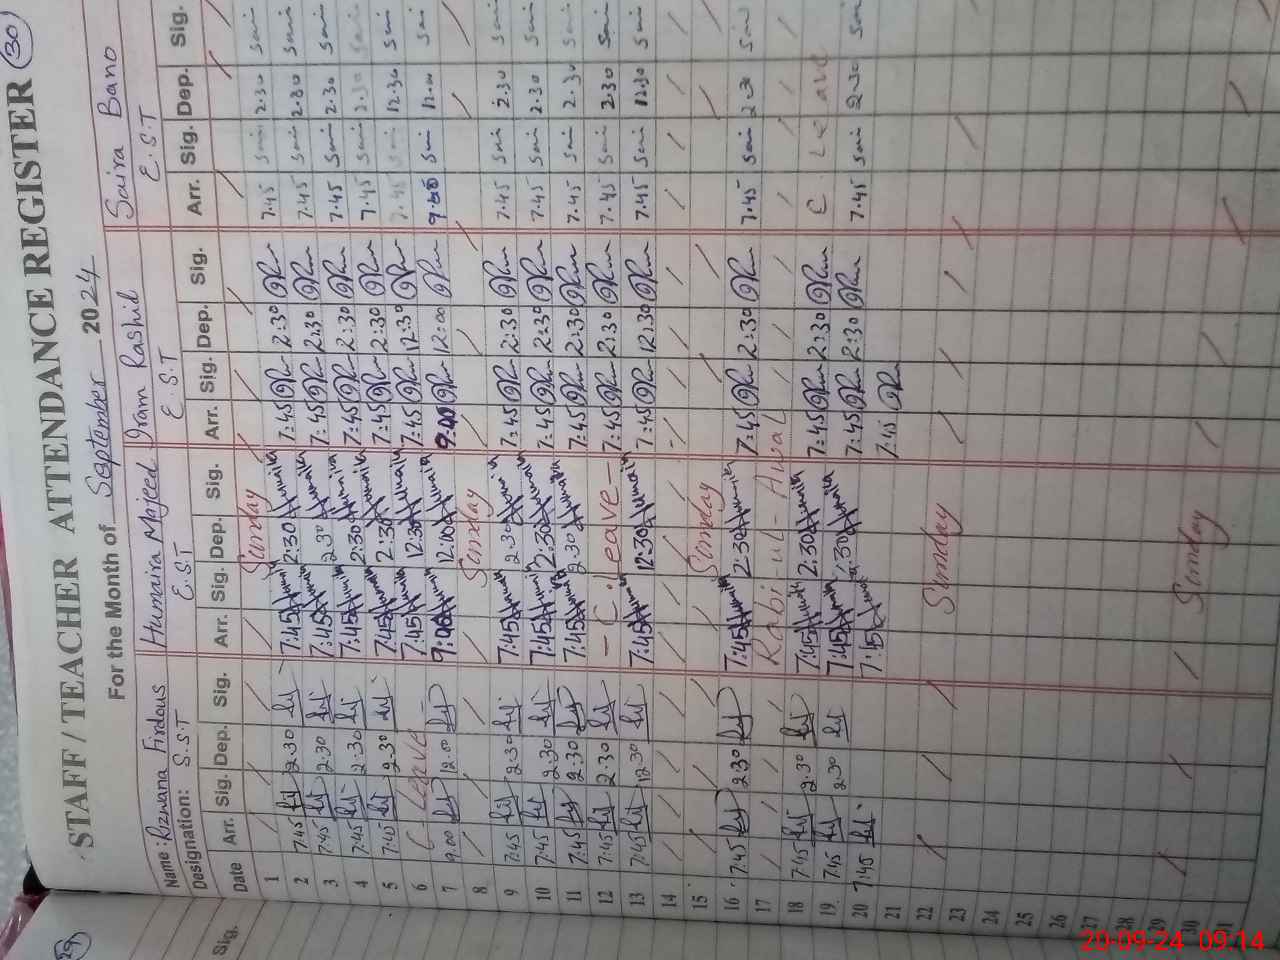 29
30
STAFF / TEACHER ATTENDANCE REGISTER
For the Month of September 2024
Name: Rizwana Firdous Humaira Majeed Iram Rashid Saira Bano
Designation: S.S.T E.S.T E.S.T E.S.T
Sig. Date Arr. Sig. Dep. Sig. Arr. Sig. Dep. Sig. Arr. Sig. Dep. Sig. Arr. Sig. Dep. Sig.
1 Sunday
2 7:45 2.30 7:45 Humaira 2:30 Humaira 7:45 2:30 7.45 Sai 2.30 Sai
3 7:45 2.30 7:45 Humaira 2:30 Humaira 7:45 2:30 7.45 Sai 2.30 Sai
4 7:45 2.30 7:45 Humaira 2:30 Humaira 7:45 2:30 7.45 Sai 2.30 Sai
5 7:45 2.30 7:45 Humaira 2:30 Humaira 7:45 2:30 7.45 Sai 2.30 Sai
6 C Leave 7:45 Humaira 12:30 Humaira 7:45 12:30 7.45 Sai 12.30 Sai
7 9.00 12.00 9:00 Humaira 12:00 Humaira 9:00 12:00 9:00 Sai 12.00 Sai
8 Sunday
9 7:45 2.30 7:45 Humaira 2:30 Humaira 7:45 2:30 7.45 Sai 2.30 Sai
10 7:45 2.30 7:45 Humaira 2:30 Humaira 7:45 2:30 7.45 Sai 2.30 Sai
11 7:45 2.30 7:45 Humaira 2:30 Humaira 7:45 2:30 7.45 Sai 2.30 Sai
12 7:45 2.30 - C. Leave - 7:45 2:30 7.45 Sai 2.30 Sai
13 7:45 12.30 7:45 Humaira 12:30 Humaira 7:45 12:30 7.45 Sai 12.30 Sai
14
15 Sunday
16 7:45 2.30 7:45 Humaira 2:30 Humaira 7:45 2:30 7.45 Sai 2.30 Sai
17 Rabi-ul-Awal
18 7:45 2.30 7:45 Humaira 2:30 Humaira 7:45 2:30 C. Leave
19 7:45 2.30 7:45 Humaira 2:30 Humaira 7:45 2:30 7.45 Sai 2.30 Sai
20 7:45 7:15 Humaira 7:45
21
22 Sunday
23
24
25
26
27
28
29 Sunday
30
31
20-09-24 09:14